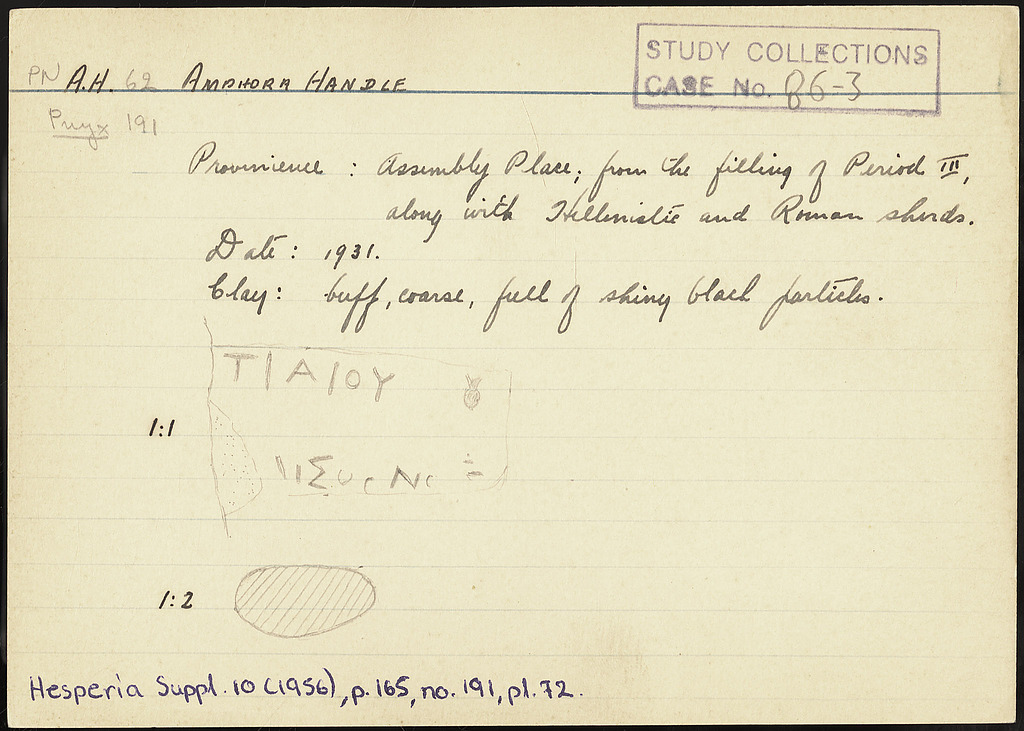 STUDY COLLECTIONS
CASE No. 86-3
PN A.H. 62 AMPHORA HANDLE
Pnyx 191
Provinience : Assembly Place; from the filling of Period III,
along with Hellenistic and Roman sherds.
Date : 1931.
Clay : buff, coarse, full of shiny black particles.
Τ|Α|ΟΥ
1:1
1:2
Hesperia Suppl. 10 (1956), p. 165, no. 191, pl. 72.